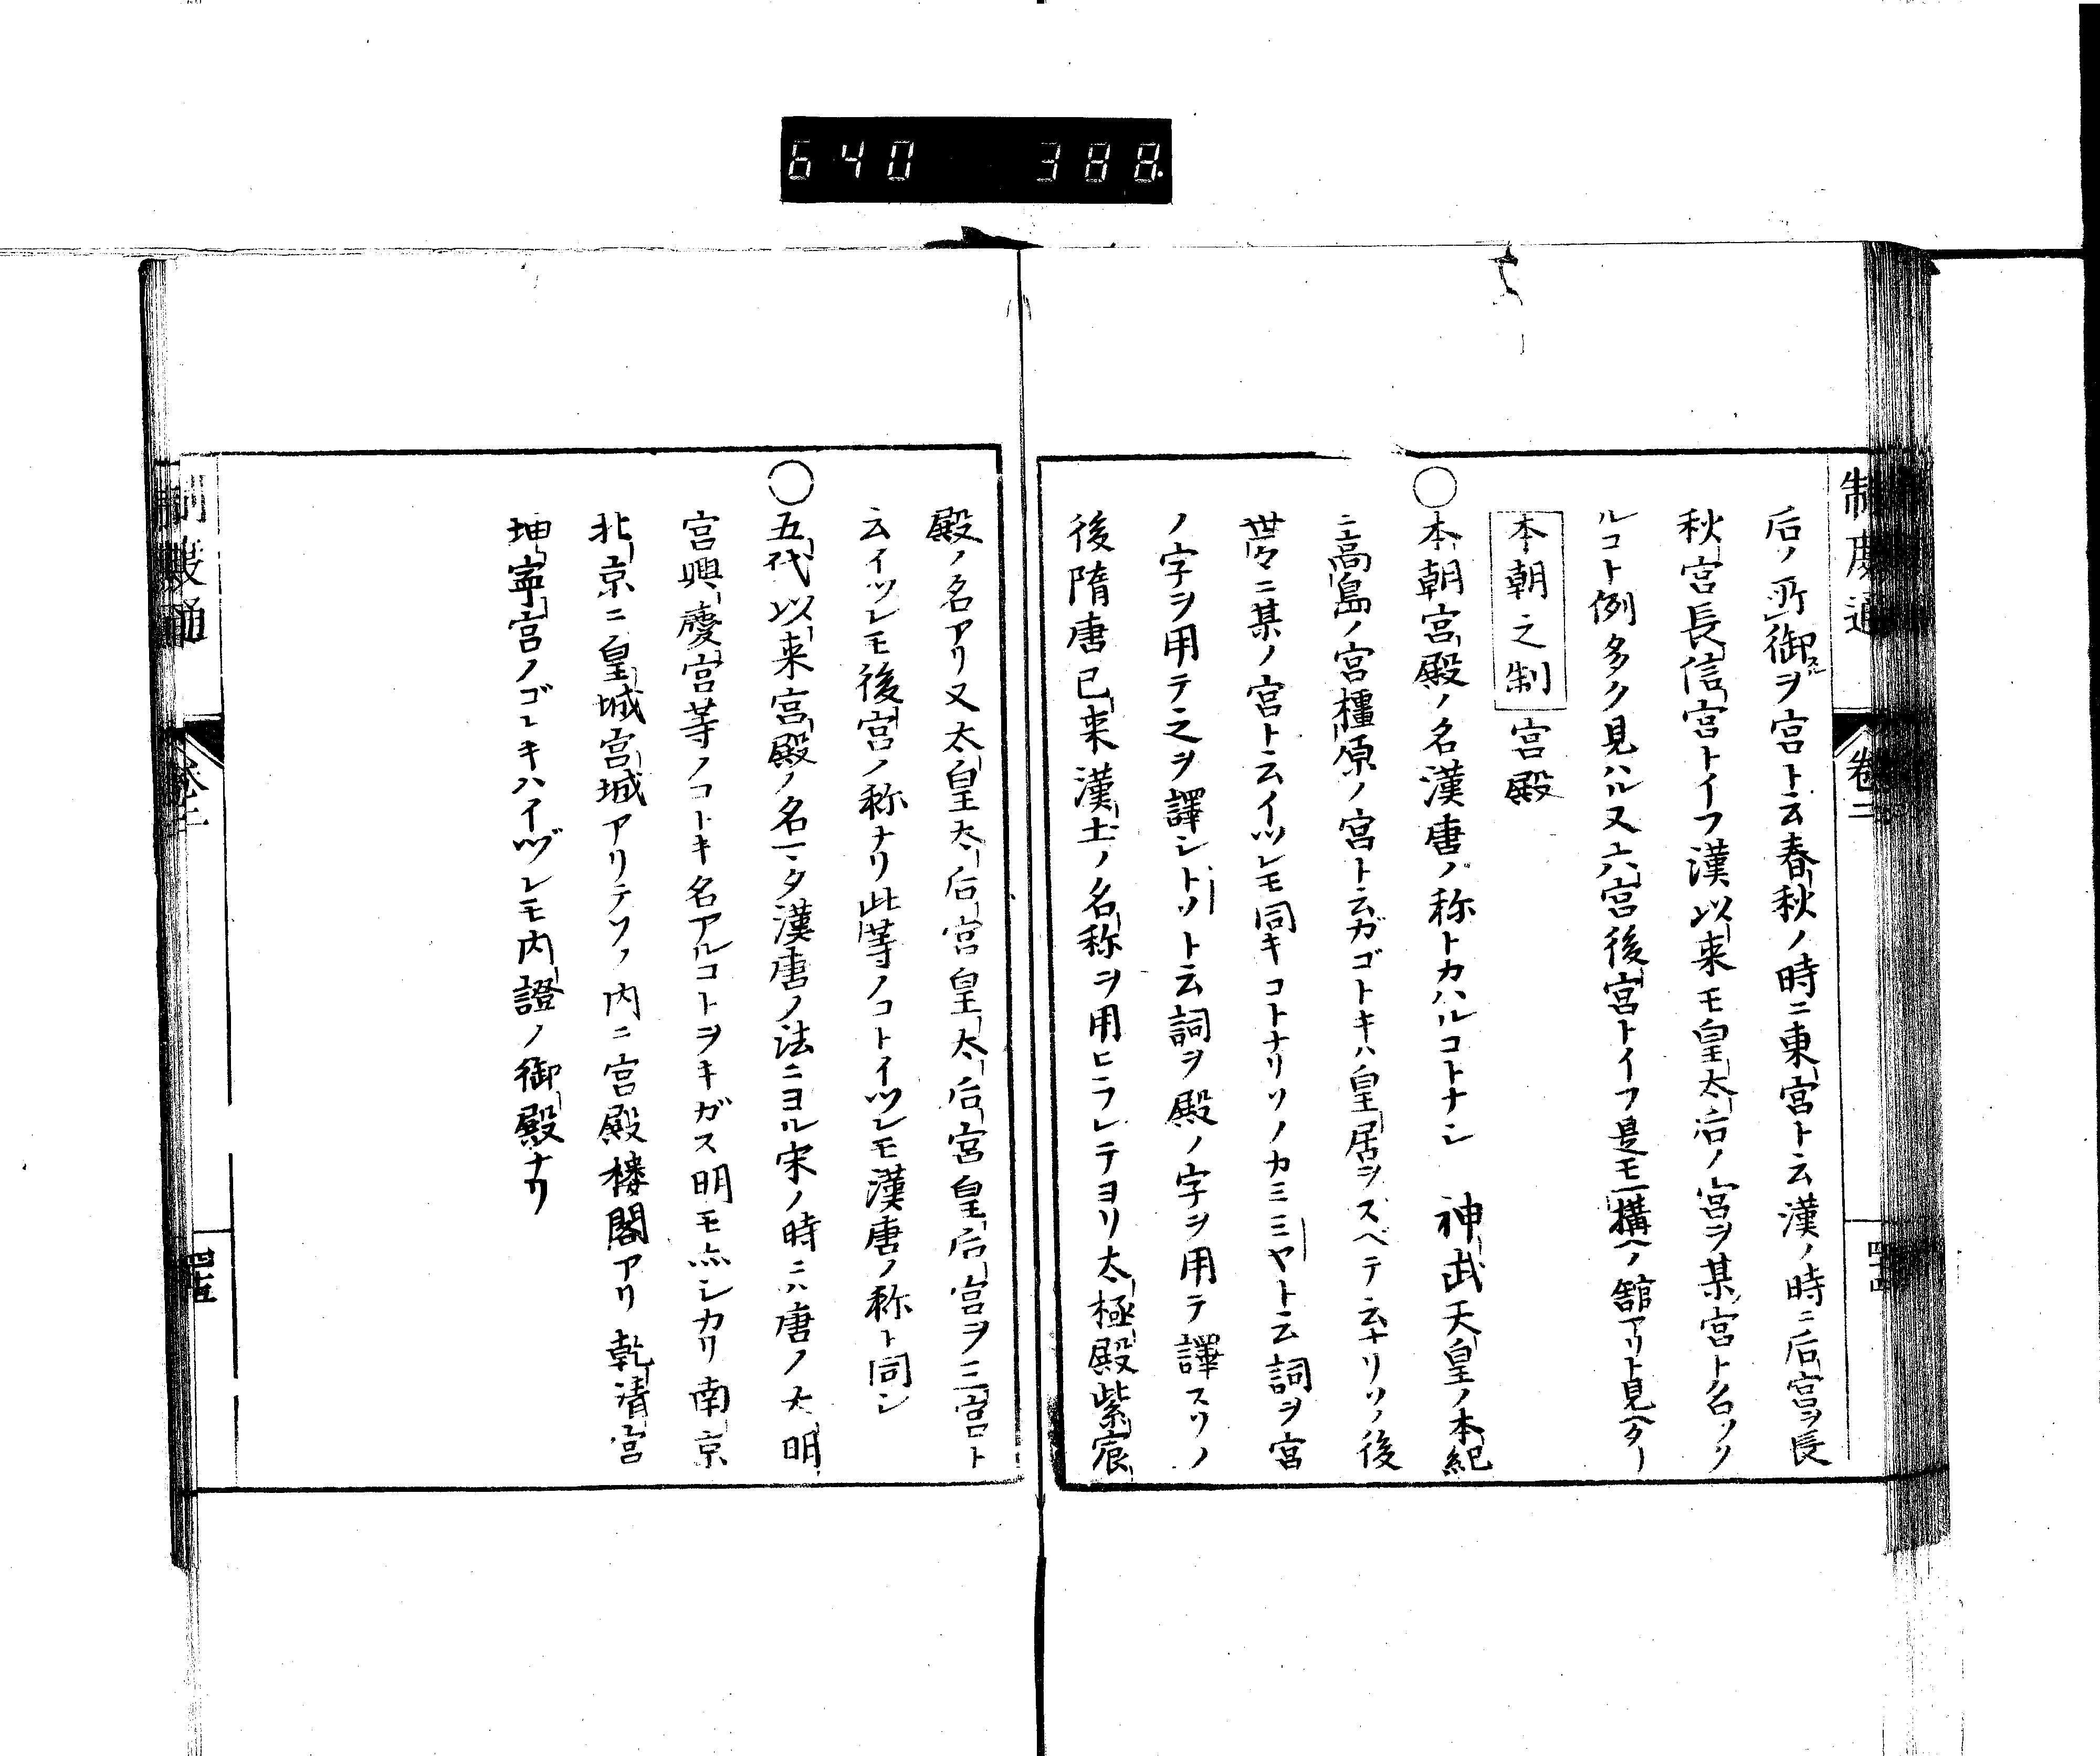 640 388
制度通 卷二
后ノ所御スルヲ宮ト云春秋ノ時ニ東宮ト云漢ノ時ニ后宮ヲ長
秋宮長信宮トイフ漢以来モ皇太后ノ宮ヲ某宮ト名ツク
ルコト例多ク見ハル又六宮後宮トイフ是モ一構ヘノ舘アリト見ヘタリ
本朝之制 宮殿
○本朝宮殿ノ名漢唐ノ称トカハルコトナシ 神武天皇ノ本紀
ニ高島ノ宮橿原ノ宮ト云ガゴトキハ皇居ヲスベテ云ナリソノ後
世々ニ某ノ宮ト云イツレモ同キコトナリソノカミミヤト云詞ヲ宮
ノ字ヲ用テ之ヲ譯シトノト云詞ヲ殿ノ字ヲ用テ譯スソノ
後隋唐已来漢土ノ名称ヲ用ヒラレテヨリ太極殿紫宸
殿ノ名アリ又太皇太后宮皇太后宮皇后宮ヲ三宮ト
云イツレモ後宮ノ称ナリ此等ノコトイツレモ漢唐ノ称ト同シ
○五代以来宮殿ノ名一々漢唐ノ法ニヨル宋ノ時ニハ唐ノ大明
宮興慶宮等ノコトキ名アルコトヲキガス明モ亦シカリ南京
北京ニ皇城宮城アリテソノ内ニ宮殿楼閣アリ乾清宮
坤寧宮ノゴトキハイヅレモ内證ノ御殿ナリ
制度通 卷二 四十五